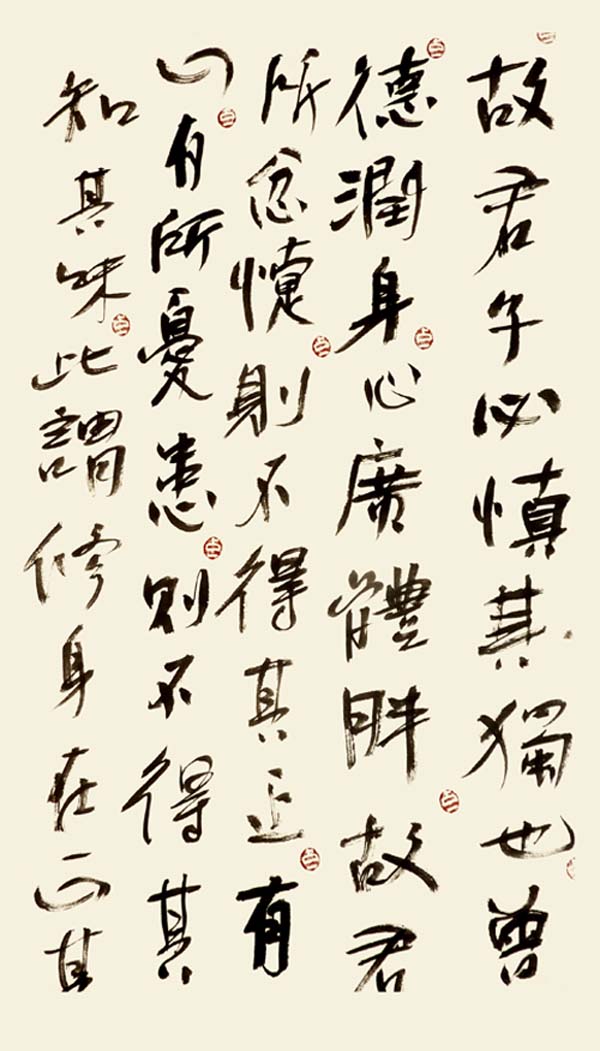 故君子必慎其獨也曾
德潤身心廣體胖故君
所忿懥則不得其正有
正有所憂患則不得其
知其味此謂修身在正其